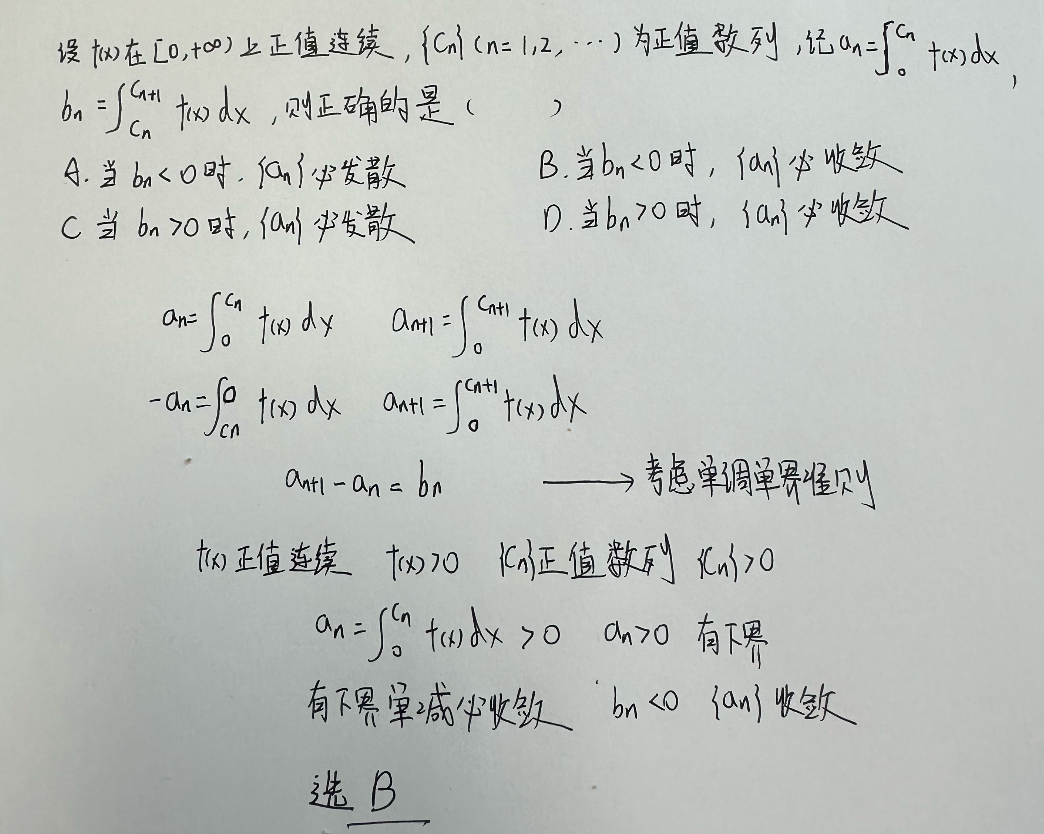 设f(x)在[0,+∞)上正值连续,{Cn}(n=1,2,…)为正值数列,记an=∫₀^{Cn} f(x)dx,
bn=∫_{Cn}^{Cn+1} f(x)dx,则正确的是( )
A.当bn<0时.{an}必发散 B.当bn<0时,{an}必收敛
C 当bn>0时,{an}必发散 D.当bn>0时,{an}必收敛
an=∫₀^{Cn} f(x)dx an+1=∫₀^{Cn+1} f(x)dx
-an=∫_{Cn}^0 f(x)dx an+1=∫₀^{Cn+1} f(x)dx
an+1-an=bn ⟶考虑单调单界准则
f(x)正值连续 f(x)>0 {Cn}正值数列 {Cn}>0
an=∫₀^{Cn} f(x)dx>0 an>0 有下界
有下界单减必收敛 bn<0 {an}收敛
选 B